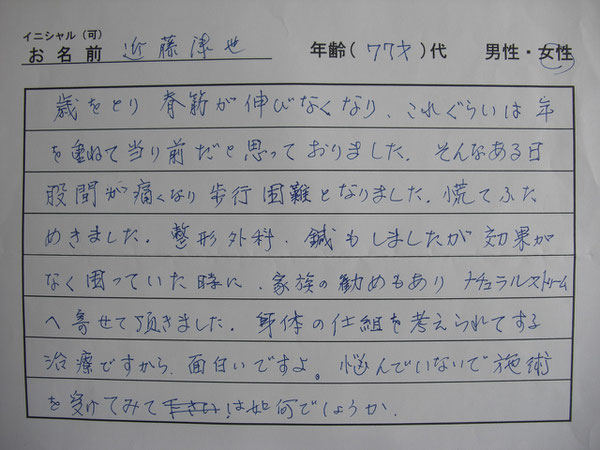 イニシャル（可）
お名前 近藤津世 年齢（77才）代 男性・女性
歳をとり 脊筋が伸びなくなり、これぐらいは年
を重ねて当り前だと思っておりました。そんなある日
股間が痛くなり歩行困難となりました。慌てふた
めきました。整形外科、鍼もしましたが効果が
なく困っていた時に、家族の勧めもあり ナチュラルストリーム
へ寄せて頂きました。身体の仕組を考えられてする
治療ですから、面白いですよ。悩んでいないで施術
を受けてみては如何でしょうか。